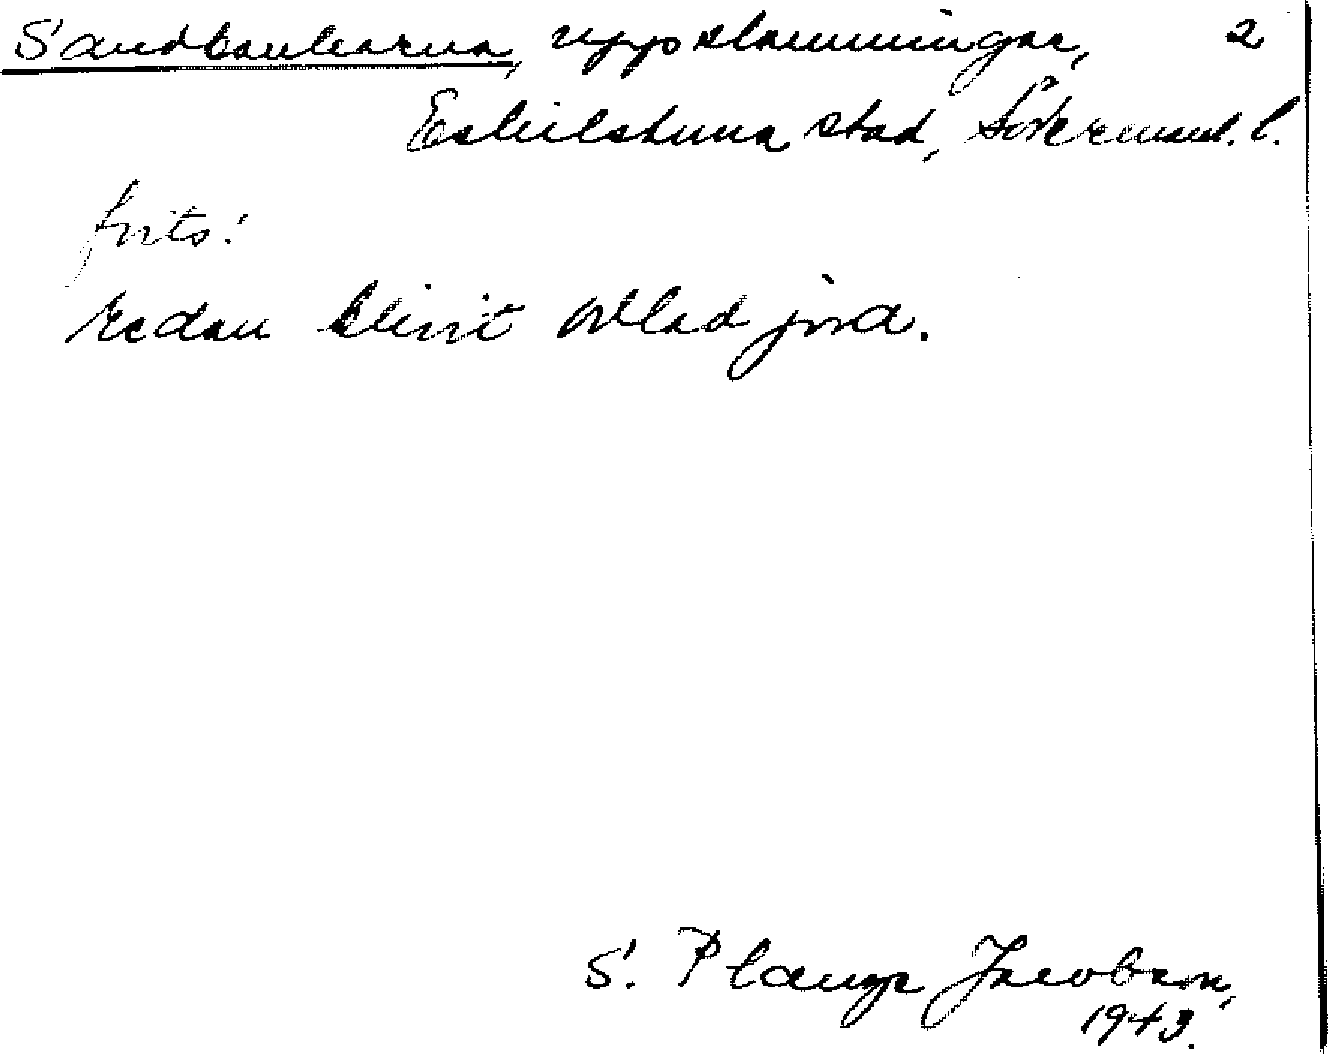 Sandbankarna, uppslamningar, 2
Eskilstuna stad, Södermanl. l.
forts:
redan blivit odlad jord.
S. Plange Jacobson,
1943.